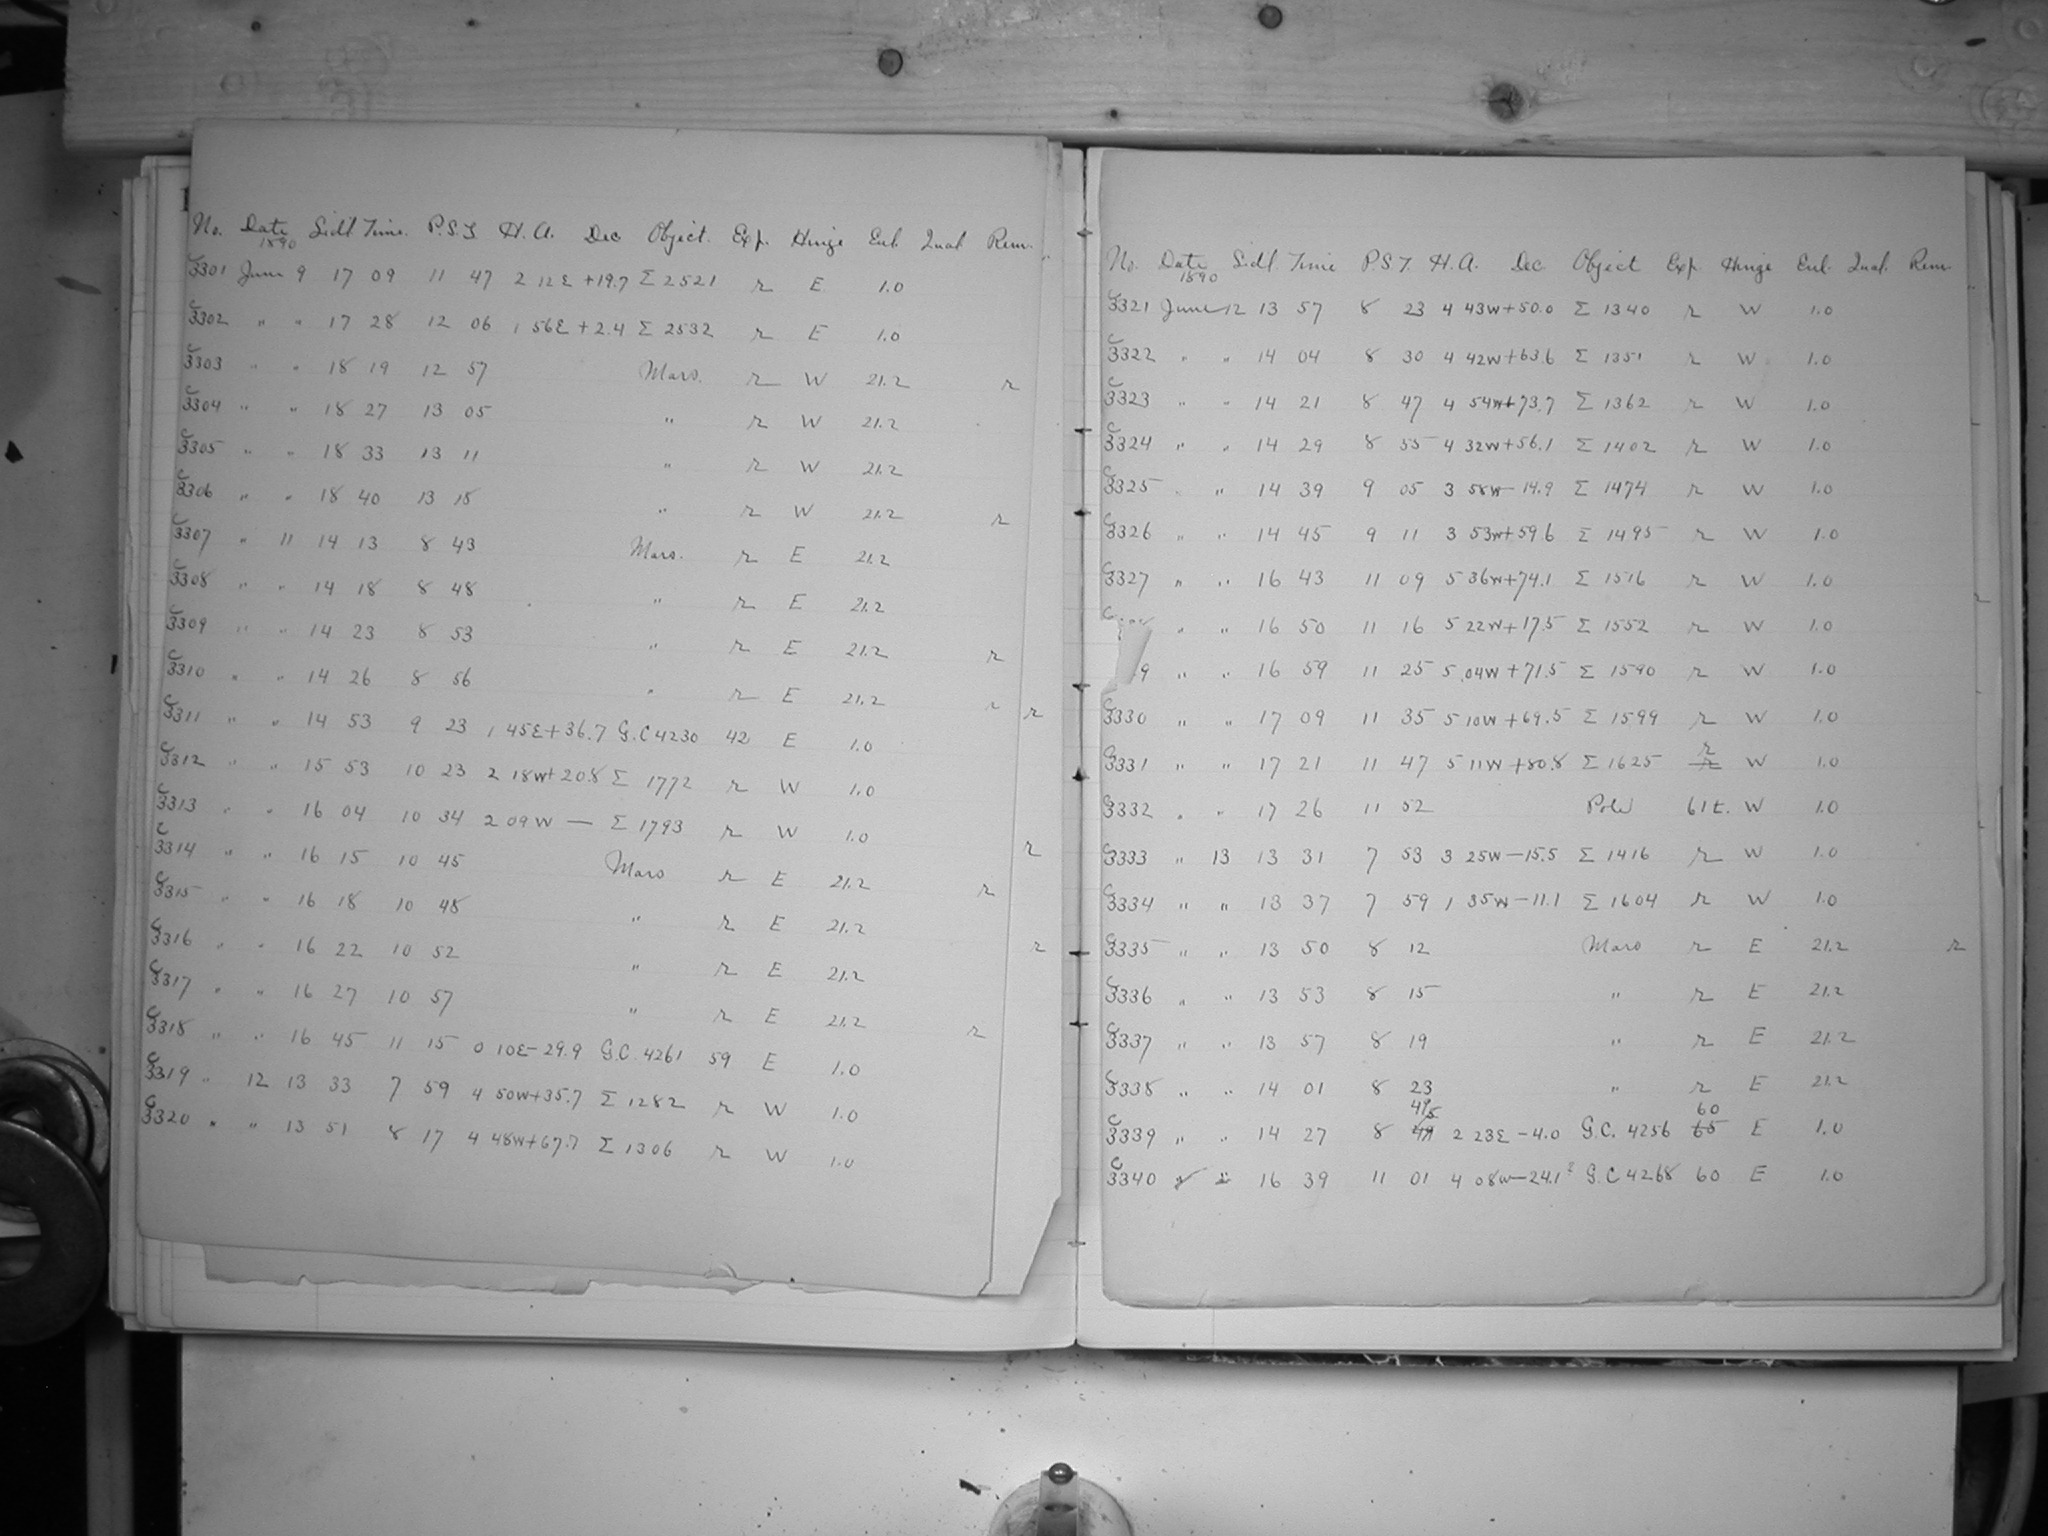 No. Date Sidl. Time. P.S.T. H.A. Dec Object. Exp. Hinge Enl. Qual Rem.
1890
C3301 June 9 17 09 11 47 2 12E +19.7 Σ 2521 r E 1.0
C3302 " " 17 28 12 06 1 56E +2.4 Σ 2532 r E 1.0
C3303 " " 18 19 12 57 Mars. r W 21.2 r
C3304 " " 18 27 13 05 " r W 21.2
C3305 " " 18 33 13 11 " r W 21.2
C3306 " " 18 40 13 18 " r W 21.2 r
C3307 " 11 14 13 8 43 Mars. r E 21.2
C3308 " " 14 18 8 48 " r E 21.2
C3309 " " 14 23 8 53 " r E 21.2 r
C3310 " " 14 26 8 56 " r E 21.2 r
C3311 " " 14 53 9 23 1 45E +36.7 G.C 4230 42 E 1.0
C3312 " " 15 53 10 23 2 18W +20.8 Σ 1772 r W 1.0
C3313 " " 16 04 10 34 2 09W — Σ 1793 r W 1.0
C3314 " " 16 15 10 45 Mars r E 21.2 r
C3315 " " 16 18 10 48 " r E 21.2
C3316 " " 16 22 10 52 " r E 21.2
C3317 " " 16 27 10 57 " r E 21.2 r
C3318 " " 16 45 11 15 0 10E -29.9 G.C. 4261 59 E 1.0
C3319 " 12 13 33 7 59 4 50W +35.7 Σ 1282 r W 1.0
C3320 " " 13 51 8 17 4 48W +67.7 Σ 1306 r W 1.0
No. Date Sidl. Time P.S.T. H.A. Dec Object Exp. Hinge Enl. Qual. Rem
1890
C3321 June 12 13 57 8 23 4 43W +50.0 Σ 1340 r W 1.0
C3322 " " 14 04 8 30 4 42W +63.6 Σ 1351 r W 1.0
C3323 " " 14 21 8 47 4 54W +73.7 Σ 1362 r W 1.0
C3324 " " 14 29 8 55 4 32W +56.1 Σ 1402 r W 1.0
C3325 " " 14 39 9 05 3 58W -14.9 Σ 1474 r W 1.0
C3326 " " 14 45 9 11 3 53W +59.6 Σ 1495 r W 1.0
C3327 " " 16 43 11 09 5 36W +74.1 Σ 1516 r W 1.0
C " " 16 50 11 16 5 22W +17.5 Σ 1552 r W 1.0
9 " " 16 59 11 25 5 04W +71.5 Σ 1590 r W 1.0
C3330 " " 17 09 11 35 5 10W +69.5 Σ 1599 r W 1.0
C3331 " " 17 21 11 47 5 11W +80.8 Σ 1625 r W 1.0
C3332 " " 17 26 11 52 Pole 61t. W 1.0
C3333 " 13 13 31 7 53 3 25W -15.5 Σ 1416 r W 1.0
C3334 " " 13 37 7 59 1 35W -11.1 Σ 1604 r W 1.0
C3335 " " 13 50 8 12 Mars r E 21.2 r
C3336 " " 13 53 8 15 " r E 21.2
C3337 " " 13 57 8 19 " r E 21.2
C3338 " " 14 01 8 23 " r E 21.2
C3339 " " 14 27 8 49 2 23E -4.0 G.C. 4256 60 65 E 1.0
C3340 " " 16 39 11 01 4 08W -24.1? G.C 4268 60 E 1.0